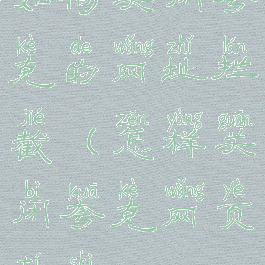 kè de wǎng zhǐ lán
克的网址拦
jié zěn yàng guān
截（怎样关
bì kuā kè wǎng yè
闭夸克网页